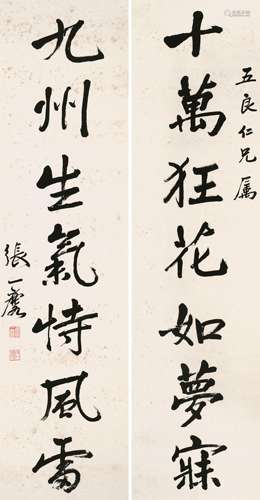 十萬狂花如夢寐
五良仁兄属
九州生氣恃風雷
張一麐